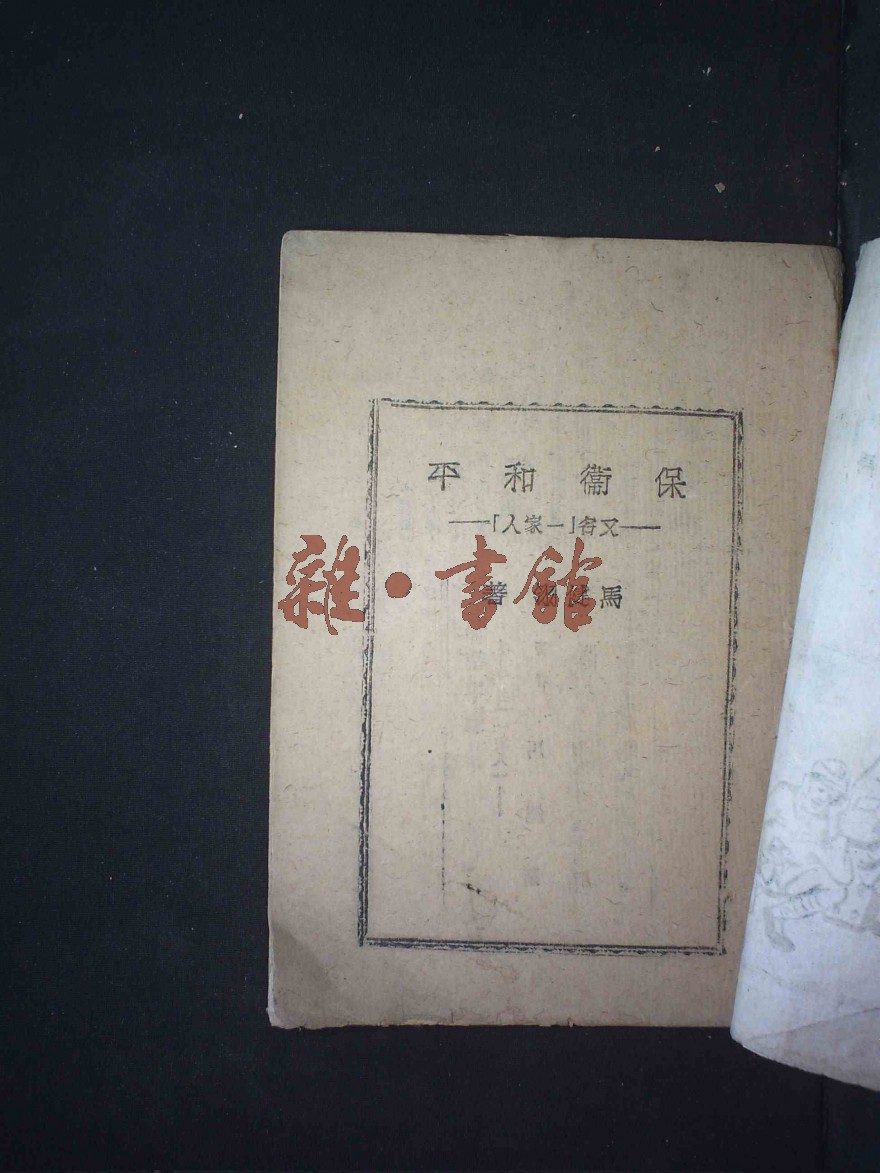 保衞和平
——又名「一家人」——
馬健翎 著
雜·書館